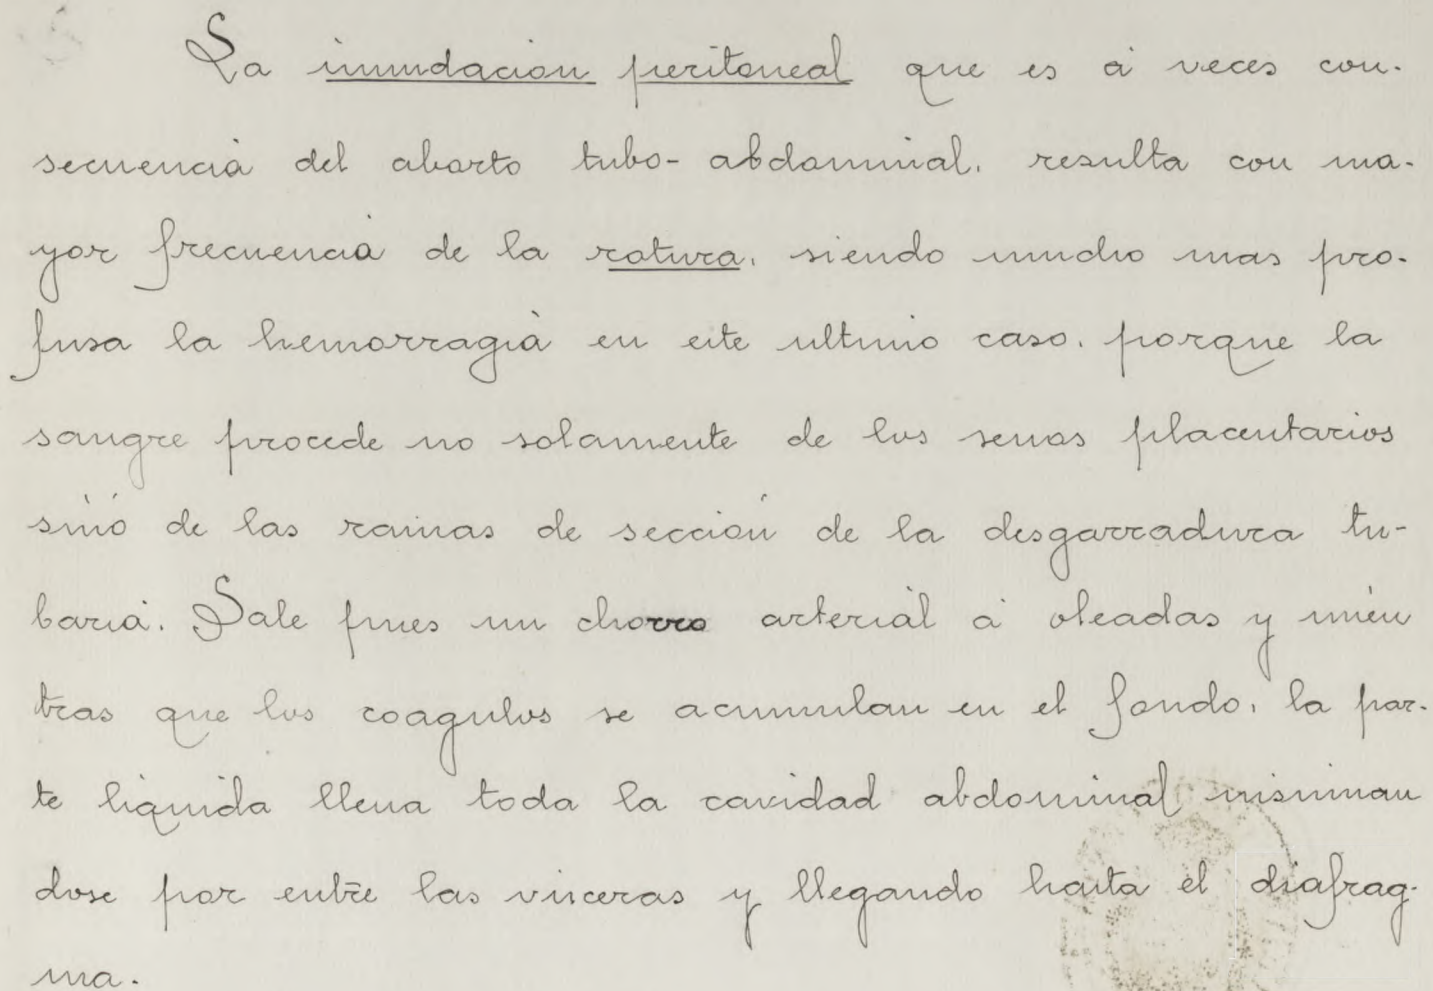 La inundacion peritoneal que es á veces con-
secuencia del aborto tubo-abdominal, resulta con ma-
yor frecuencia de la rotura, siendo mucho mas pro-
fusa la hemorragia en este ultimo caso, porque la
sangre procede no solamente de los senos placentarios
sinó de las ramas de sección de la desgarradura tu-
baria. Sale pues un chorro arterial á oleadas y mien
tras que los coagulos se acumulan en el fondo, la par-
te liquida llena toda la cavidad abdominal insinuan
dose por entre las visceras y llegando hasta el diafrag-
ma.